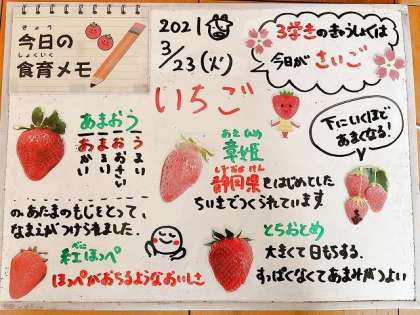 きょう
今日の
しょくいく
食育メモ
2021
3/23(火)
3学きのきゅうしょくは
今日がさいご
いちご
あまおう
あかい
まるい
おおきい
うまい
の、あたまのもじをとって、
なまえがつけられました。
あきひめ
章姫
しずおかけん
静岡県をはじめとした
ちいきでつくられています
下にいくほど
あまくなる!
べに
紅ほっぺ
ほっぺがおちるようなおいしさ
とちおとめ
大きくて日もちする。
すっぱくなくてあまみがつよい